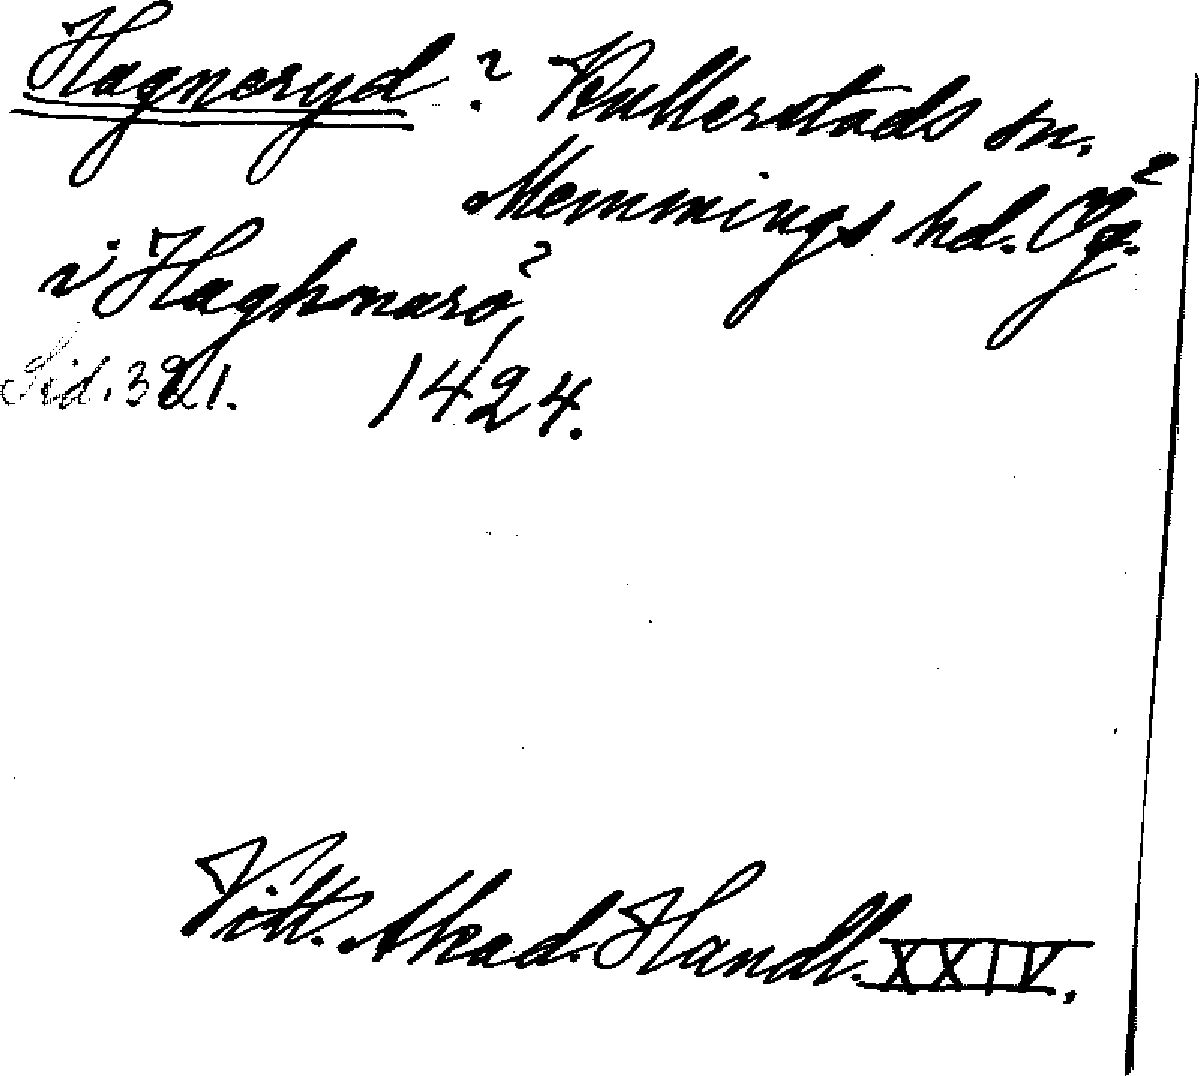 Hagneryd? Kullerstads sn.
Memmings hd. Ög.?
i Haghnarö?
Sid. 321. 1424.
Vitt. Akad. Handl. XXIV.